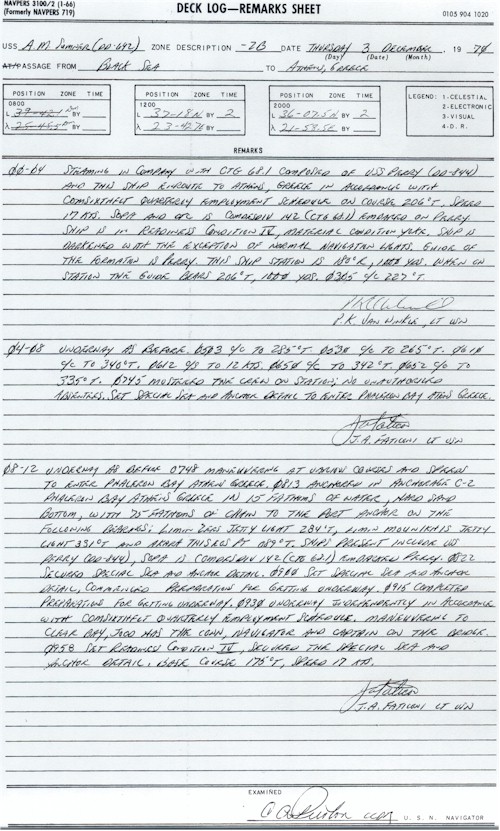 NAVPERS 3100/2 (1-66)
(Formerly NAVPERS 719)
DECK LOG—REMARKS SHEET
0105 904 1020
USS A.M. Sumner (DD-692) ZONE DESCRIPTION -2B DATE THURSDAY 3 DECEMBER, 19 70
(Day) (Date) (Month)
AT/PASSAGE FROM BLACK SEA TO ATHENS, GREECE
POSITION ZONE TIME
0800
L BY
λ BY
POSITION ZONE TIME
1200
L 37-18N BY 2
λ BY
POSITION ZONE TIME
2000
L 36-07.5N BY 2
λ 21-58.5E BY
LEGEND: 1-CELESTIAL
2-ELECTRONIC
3-VISUAL
4-D. R.
REMARKS
00-04 STEAMING IN COMPANY WITH CTG 68.1 COMPOSED OF USS PERRY (DD-844)
AND THIS SHIP ENROUTE TO ATHENS, GREECE IN ACCORDANCE WITH
COMSIXTHFLT QUARTERLY EMPLOYMENT SCHEDULE ON COURSE 206°T. SPEED
17 KTS. SOPA AND OTC IS COMDESDIV 142 (CTG 68.1) EMBARKED ON PERRY.
SHIP IS IN READINESS CONDITION IV, MATERIAL CONDITION YOKE. SHIP IS
DARKENED WITH THE EXCEPTION OF NORMAL NAVIGATION LIGHTS. GUIDE OF
THE FORMATION IS PERRY. THIS SHIP STATION IS 180°R, 1000 YDS. WHEN ON
STATION THE GUIDE BEARS 206°T, 1000 YDS. 0305 C/C 227°T.
P.K. VAN WINKLE, LT USN
04-08 UNDERWAY AS BEFORE. 0503 C/C TO 285°T. 0530 C/C TO 265°T. 0610
C/C TO 340°T. 0612 C/S TO 12 KTS. 0650 C/C TO 342°T. 0652 C/C TO
335°T. 0745 MUSTERED THE CREW ON STATION; NO UNAUTHORIZED
ABSENTEES. SET SPECIAL SEA AND ANCHOR DETAIL TO ENTER PHALERON BAY ATHENS GREECE.
J.A. FATICONI LT USN
08-12 UNDERWAY AS BEFORE 0748 MANEUVERING AT VARIOUS COURSES AND SPEEDS
TO ENTER PHALERON BAY ATHENS GREECE. 0813 ANCHORED IN ANCHORAGE C-2
PHALERON BAY ATHENS GREECE IN 15 FATHOMS OF WATER, HARD SAND
BOTTOM, WITH 75 FATHOMS OF CHAIN TO THE PORT ANCHOR ON THE
FOLLOWING BEARINGS: LIMIN ZEES JETTY LIGHT 284°T, LIMIN MOUNIKHIAS JETTY
LIGHT 331°T AND PT 089°T. SHIPS PRESENT INCLUDE USS
PERRY (DD-844), SOPA IS COMDESDIV 142 (CTG 68.1) EMBARKED PERRY. 0822
SECURED SPECIAL SEA AND ANCHOR DETAIL. 0900 SET SPECIAL SEA AND ANCHOR
DETAIL, COMMENCED PREPARATION FOR GETTING UNDERWAY. 0915 COMPLETED
PREPARATIONS FOR GETTING UNDERWAY. 0930 UNDERWAY INDEPENDENTLY IN ACCORDANCE
WITH COMSIXTHFLT QUARTERLY EMPLOYMENT SCHEDULE. MANEUVERING TO
CLEAR BAY, JOOD HAS THE CONN, NAVIGATOR AND CAPTAIN ON THE BRIDGE.
0958 SET READINESS CONDITION IV, SECURED THE SPECIAL SEA AND
ANCHOR DETAIL. BASE COURSE 175°T, SPEED 17 KTS.
J.A. FATICONI LT USN
EXAMINED
U. S. N. NAVIGATOR